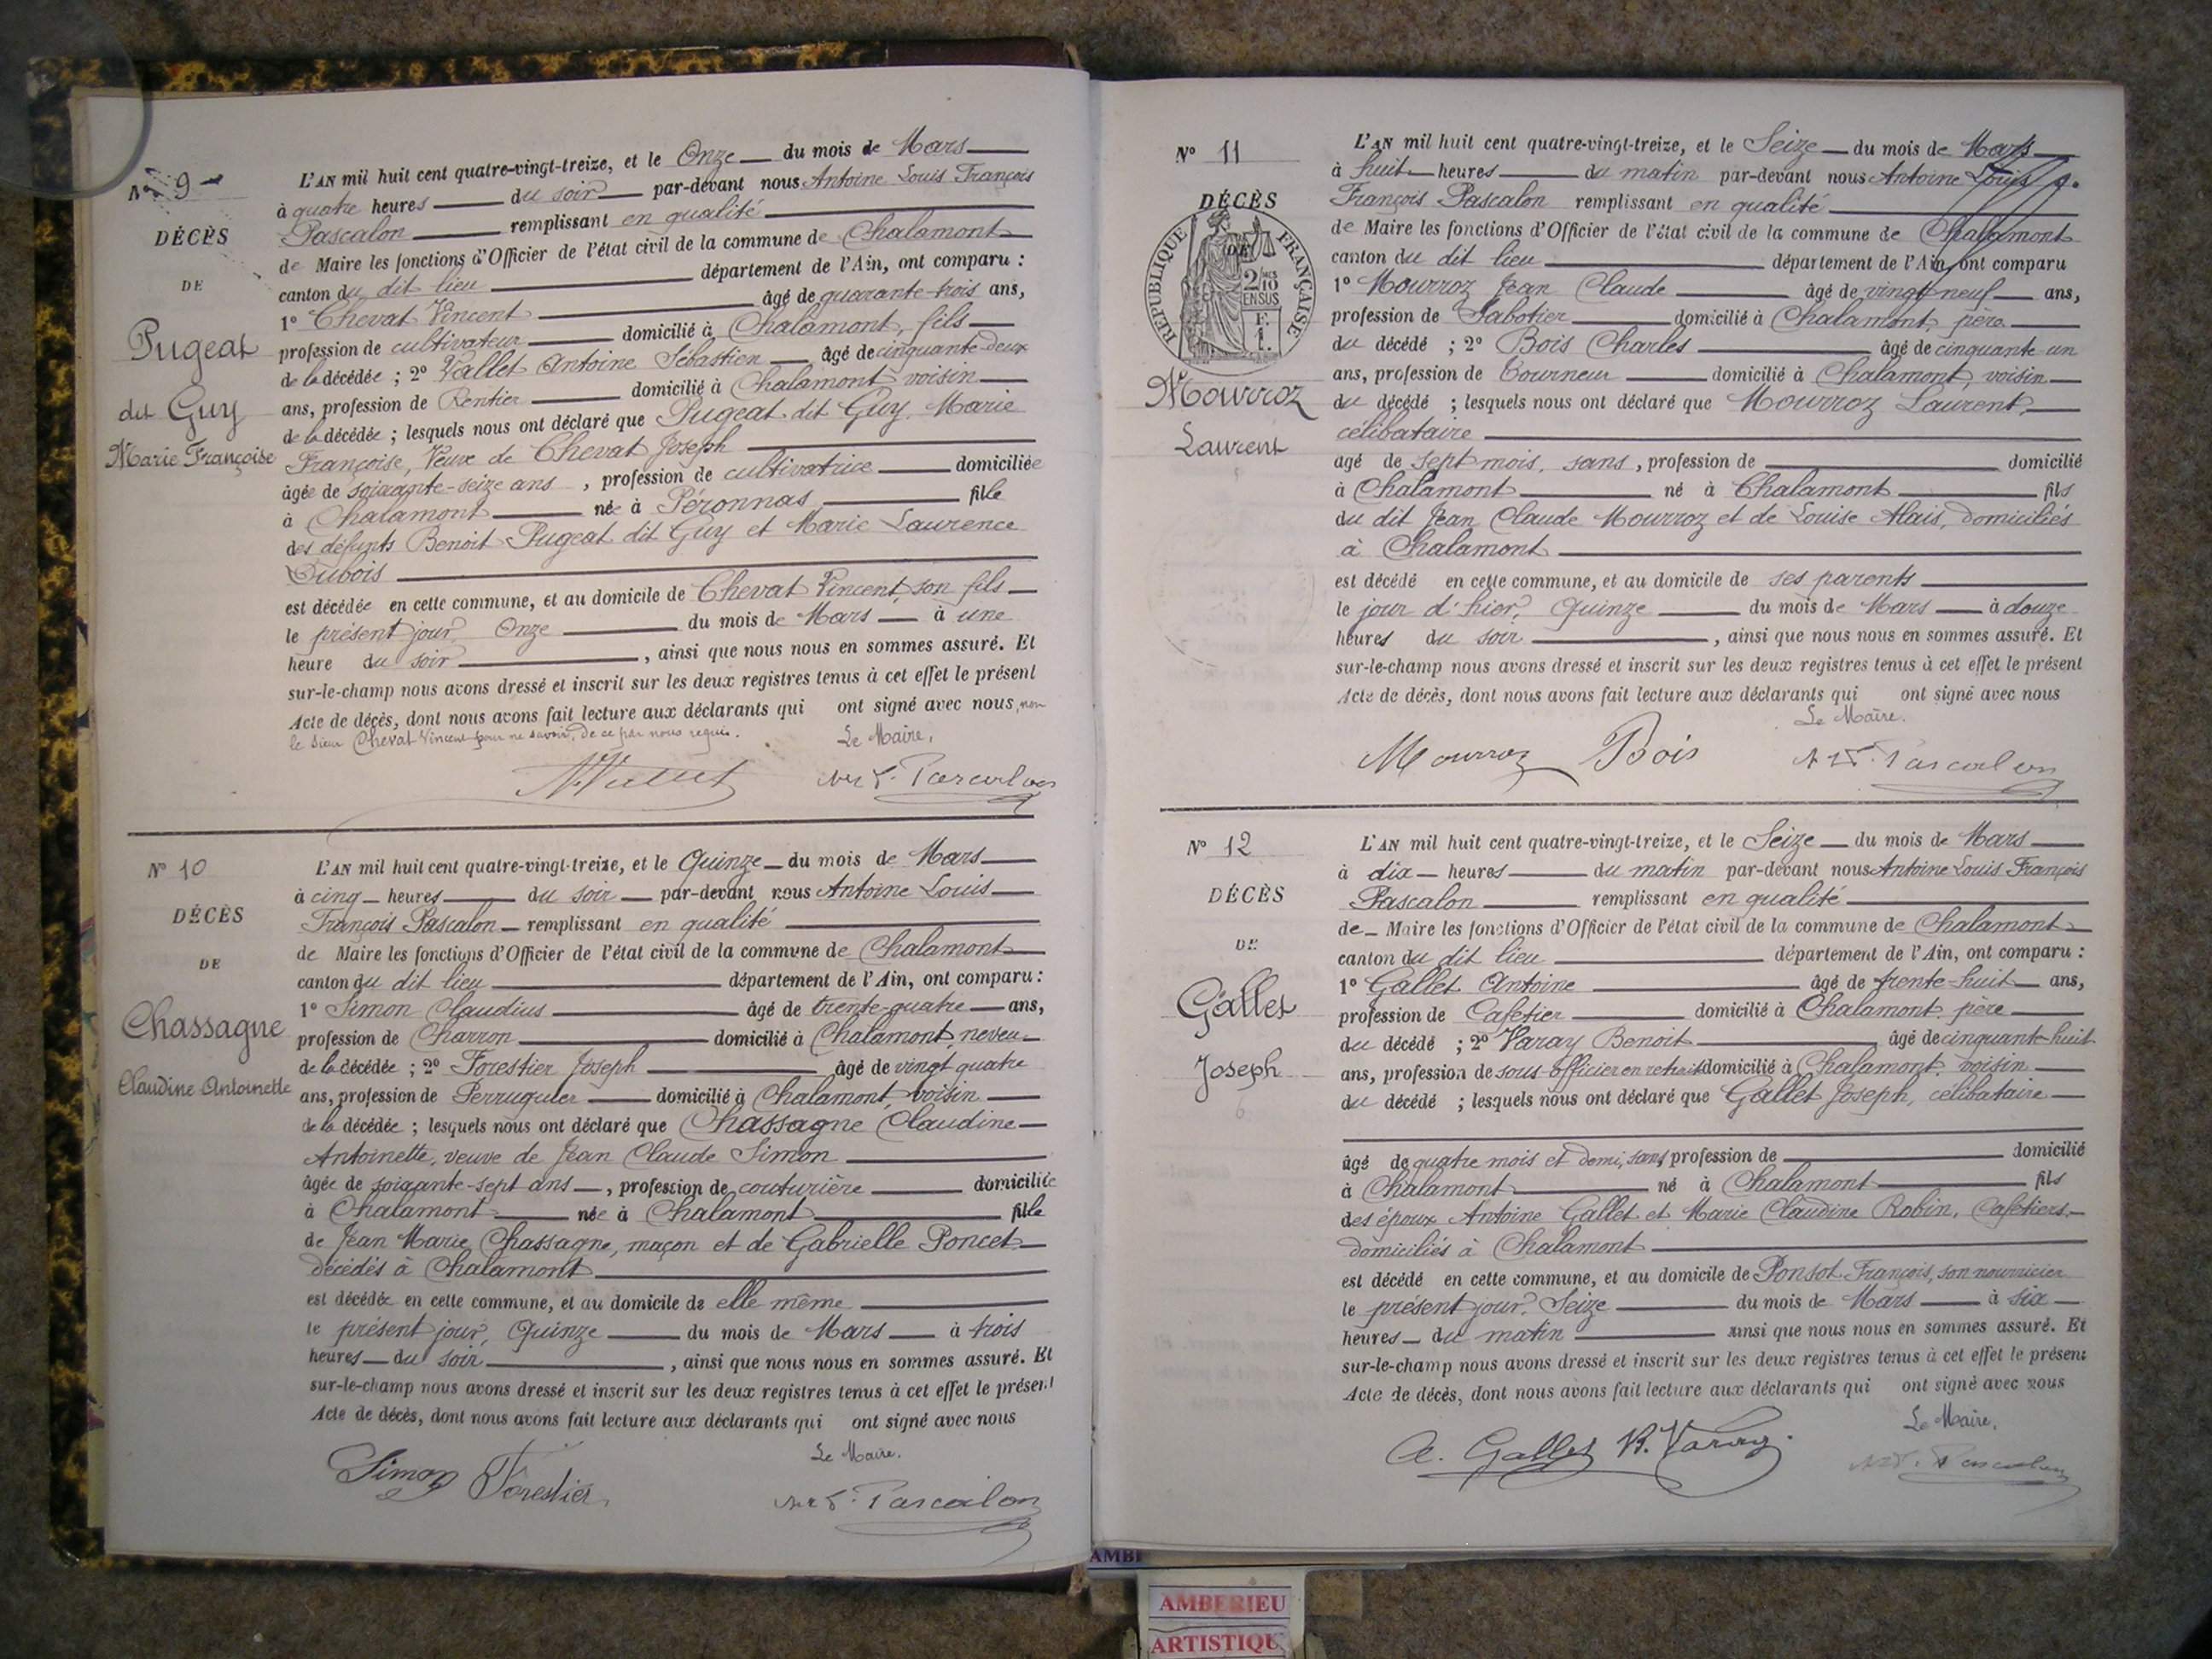 N° 9
DÉCÈS
DE
Pugeat
dit Guy
Marie Françoise
L'AN mil huit cent quatre-vingt-treize, et le Onze du mois de Mars
à quatre heures du soir par-devant nous Antoine Louis François
Pascalon remplissant en qualité
de Maire les fonctions d'Officier de l'état civil de la commune de Chalamont
canton du dit lieu département de l'Ain, ont comparu :
1° Chevat Vincent âgé de quarante-trois ans,
profession de cultivateur domicilié à Chalamont, fils
de la décédée ; 2° Vallet Antoine Sébastien âgé de cinquante-deux
ans, profession de Rentier domicilié à Chalamont, voisin
de la décédée ; lesquels nous ont déclaré que Pugeat dit Guy, Marie
Françoise, Veuve de Chevat Joseph
âgée de soixante-seize ans, profession de cultivatrice domiciliée
à Chalamont née à Péronnas fille
des défunts Benoit Pugeat dit Guy et Marie Laurence
Dubois
est décédée en cette commune, et au domicile de Chevat Vincent, son fils
le présent jour, Onze du mois de Mars à une
heure du soir, ainsi que nous nous en sommes assuré. Et
sur-le-champ nous avons dressé et inscrit sur les deux registres tenus à cet effet le présent
Acte de décès, dont nous avons fait lecture aux déclarants qui ont signé avec nous, non
le sieur Chevat Vincent pour ne savoir, de ce par nous requis.
Le Maire,
N° 10
DÉCÈS
DE
Chassagne
Claudine Antoinette
L'AN mil huit cent quatre-vingt-treize, et le Quinze du mois de Mars
à cinq heures du soir par-devant nous Antoine Louis
François Pascalon remplissant en qualité
de Maire les fonctions d'Officier de l'état civil de la commune de Chalamont
canton du dit lieu département de l'Ain, ont comparu :
1° Simon Claudius âgé de trente-quatre ans,
profession de Charron domicilié à Chalamont, neveu
de la décédée ; 2° Forestier Joseph âgé de vingt quatre
ans, profession de Perruquier domicilié à Chalamont, voisin
de la décédée ; lesquels nous ont déclaré que Chassagne Claudine
Antoinette, veuve de Jean Claude Simon
âgée de soixante-sept ans, profession de couturière domiciliée
à Chalamont née à Chalamont fille
de Jean Marie Chassagne, maçon et de Gabrielle Poncet
décédés à Chalamont
est décédée en cette commune, et au domicile de elle même
le présent jour, Quinze du mois de Mars à trois
heures du soir, ainsi que nous nous en sommes assuré. Et
sur-le-champ nous avons dressé et inscrit sur les deux registres tenus à cet effet le présent
Acte de décès, dont nous avons fait lecture aux déclarants qui ont signé avec nous
Le Maire.
Simon Forestier
Pascalon
N° 11
DÉCÈS
DE
RÉPUBLIQUE FRANÇAISE
2/10 EN SUS
Mourroz
Laurent
L'AN mil huit cent quatre-vingt-treize, et le Seize du mois de Mars
à huit heures du matin par-devant nous Antoine Louis
François Pascalon remplissant en qualité
de Maire les fonctions d'Officier de l'état civil de la commune de Chalamont
canton du dit lieu département de l'Ain, ont comparu
1° Mourroz Jean Claude âgé de vingt neuf ans,
profession de Sabotier domicilié à Chalamont, père
du décédé ; 2° Bois Charles âgé de cinquante un
ans, profession de Tourneur domicilié à Chalamont, voisin
du décédé ; lesquels nous ont déclaré que Mourroz Laurent,
célibataire
agé de sept mois, sans, profession de domicilié
à Chalamont né à Chalamont fils
du dit Jean Claude Mourroz et de Louise Alais, domiciliés
à Chalamont
est décédé en cette commune, et au domicile de ses parents
le jour d'hier, Quinze du mois de Mars à douze
heures du soir, ainsi que nous nous en sommes assuré. Et
sur-le-champ nous avons dressé et inscrit sur les deux registres tenus à cet effet le présent
Acte de décès, dont nous avons fait lecture aux déclarants qui ont signé avec nous
Le Maire.
Mourroz Bois Pascalon
N° 12
DÉCÈS
DE
Gallet
Joseph
L'AN mil huit cent quatre-vingt-treize, et le Seize du mois de Mars
à dix heures du matin par-devant nous Antoine Louis François
Pascalon remplissant en qualité
de Maire les fonctions d'Officier de l'état civil de la commune de Chalamont
canton du dit lieu département de l'Ain, ont comparu :
1° Gallet Antoine âgé de trente-huit ans,
profession de Cafétier domicilié à Chalamont, père
du décédé ; 2° Varay Benoit âgé de cinquante-huit
ans, profession de sous-officier en retraite domicilié à Chalamont, voisin
du décédé ; lesquels nous ont déclaré que Gallet Joseph, célibataire
âgé de quatre mois et demi, sans profession de domicilié
à Chalamont né à Chalamont fils
des époux Antoine Gallet et Marie Claudine Robin, Cafétiers
domiciliés à Chalamont
est décédé en cette commune, et au domicile de Ponsot François, son nourricier
le présent jour, Seize du mois de Mars à six
heures du matin ainsi que nous nous en sommes assuré. Et
sur-le-champ nous avons dressé et inscrit sur les deux registres tenus à cet effet le présent
Acte de décès, dont nous avons fait lecture aux déclarants qui ont signé avec nous
Le Maire,
A. Gallet B. Varay
AMBERIEU
ARTISTIQU